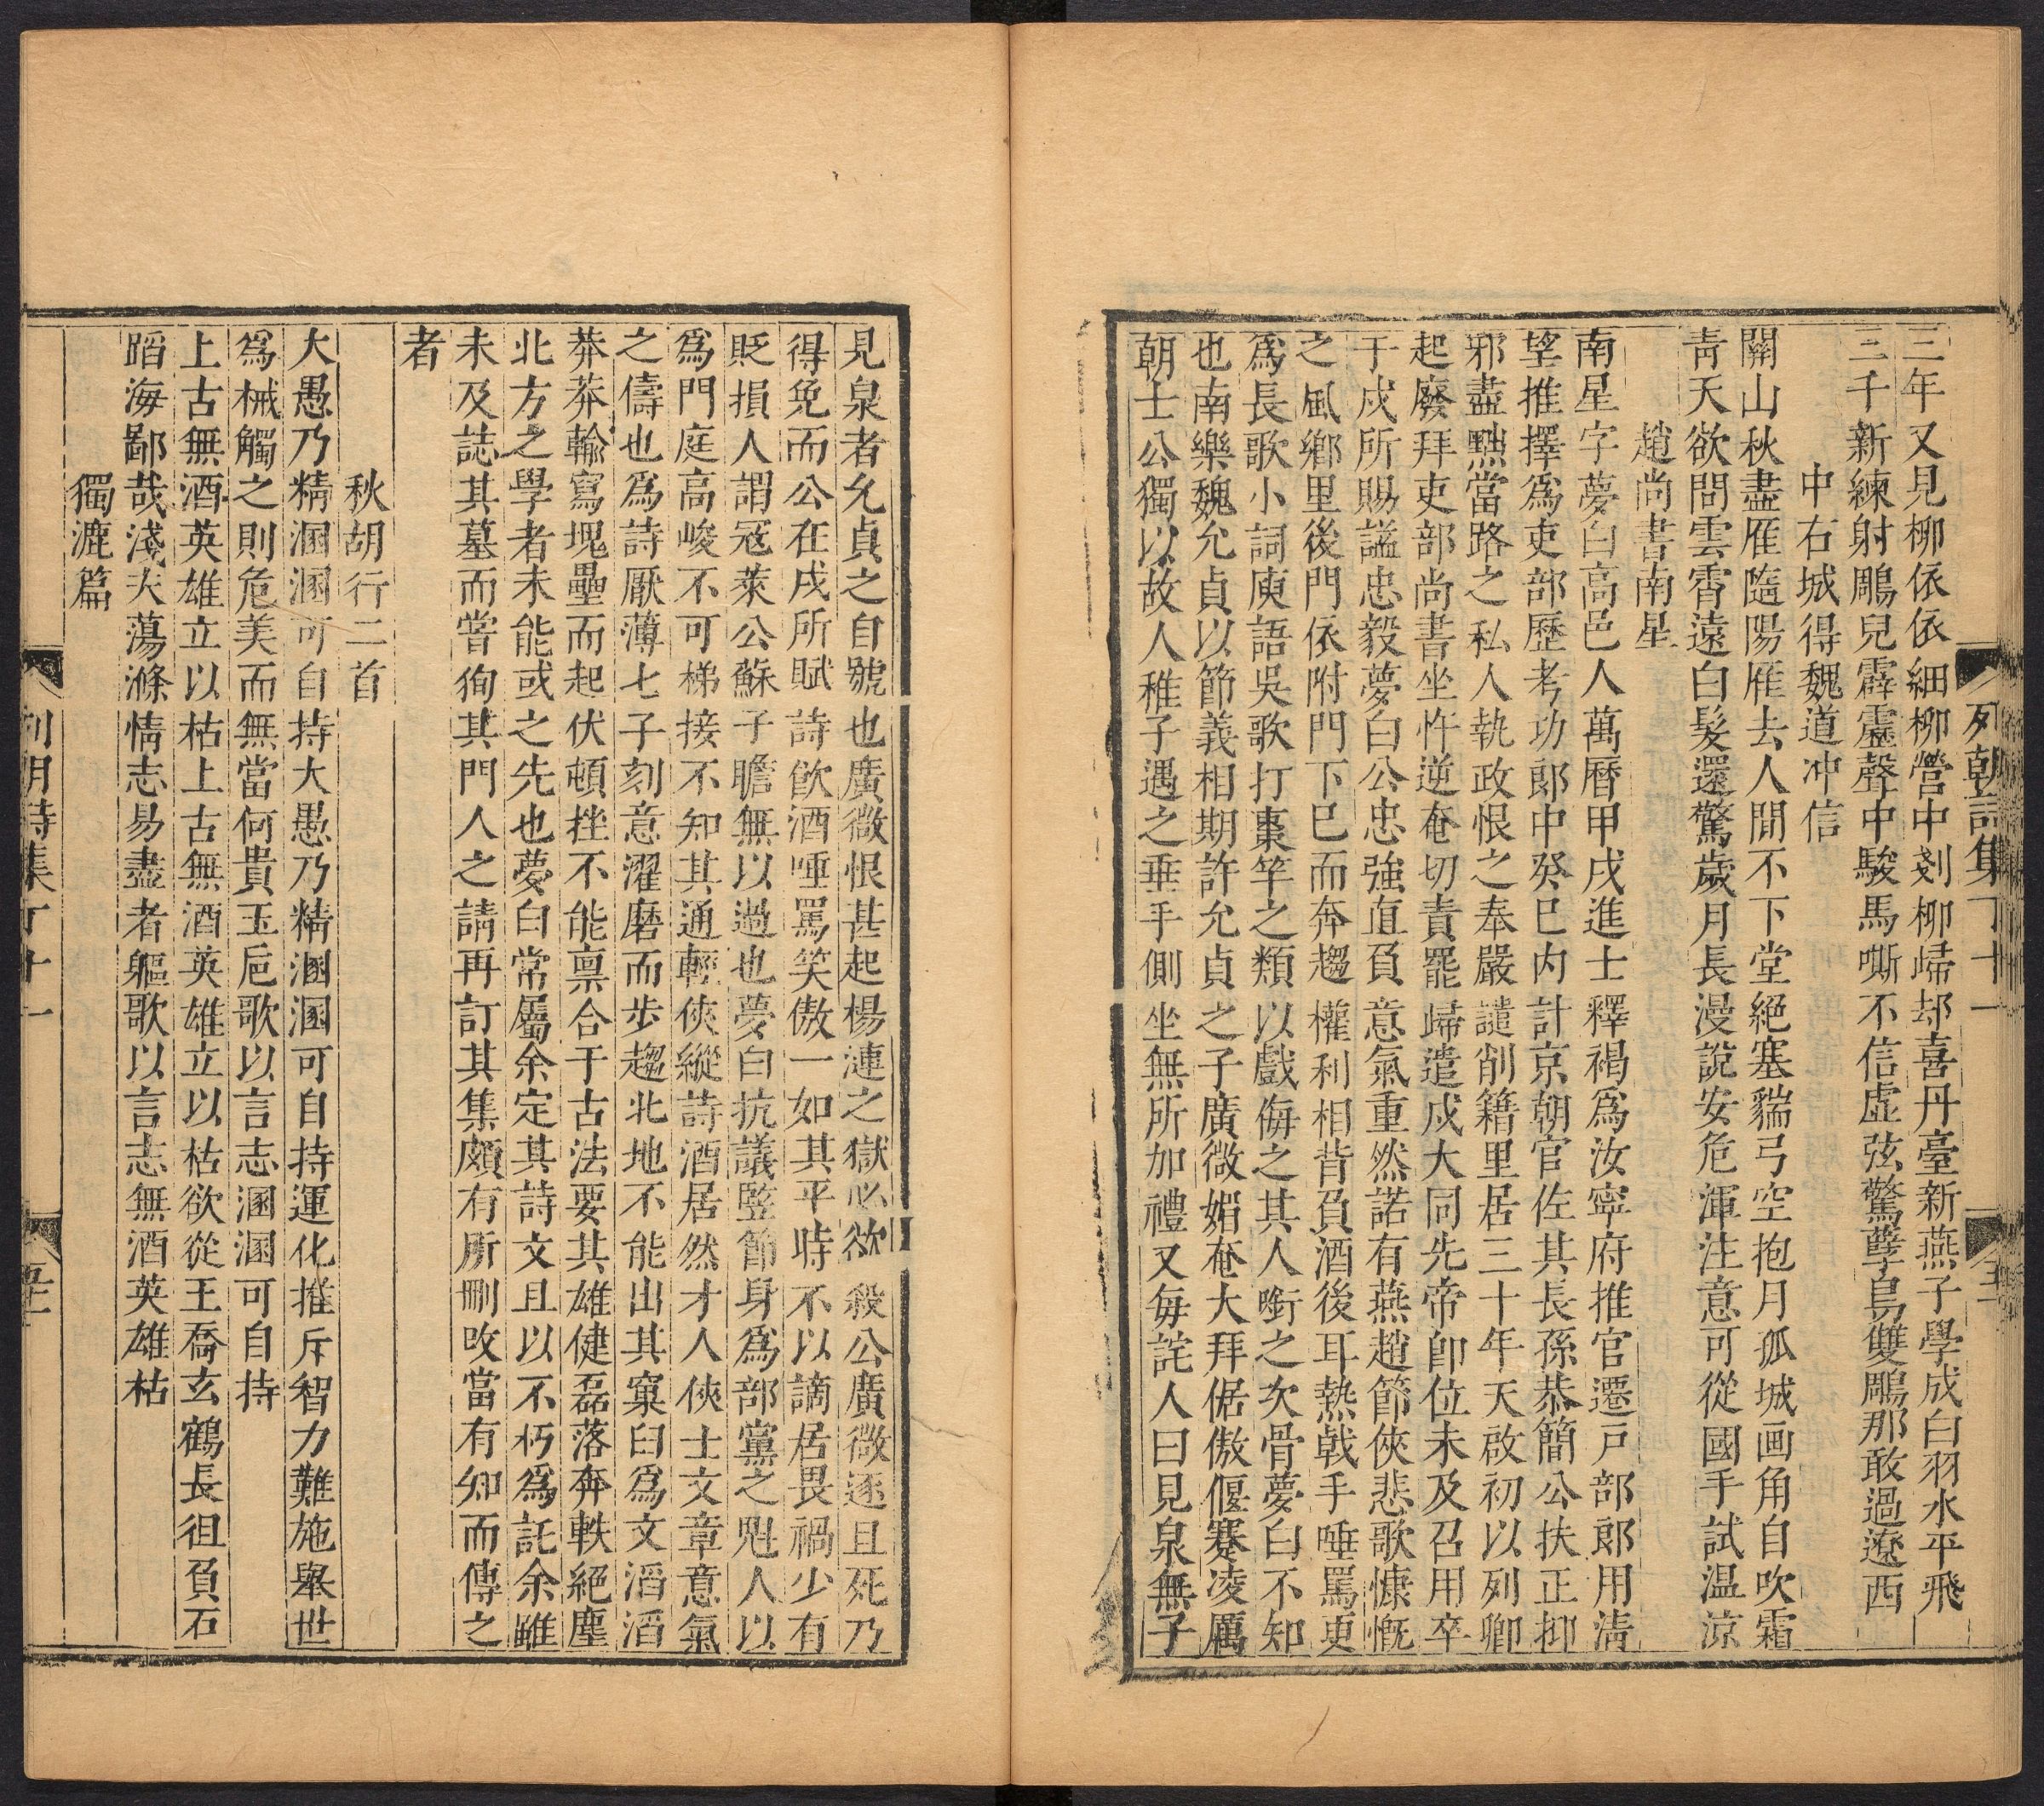 三年又見柳依依細柳營中剗柳歸却喜丹臺新燕子學成白羽水平飛
三千新練射鵰兒霹靂聲中駿馬嘶不信虛弦驚孽鳥雙鵰那敢過遼西
中右城得魏道冲信
關山秋盡雁隨陽雁去人間不下堂絕塞獵弓空抱月孤城画角自吹霜
青天欲問雲霄遠白髮還驚歲月長漫說安危渾注意可從國手試温凉
趙尚書南星
南星字夢白高邑人萬曆甲戌進士釋褐爲汝寧府推官遷戸部郎用清
望推擇爲吏部歷考功郎中癸巳內計京朝官佐其長孫恭簡公扶正抑
邪盡黜當路之私人執政恨之奉嚴譴削籍里居三十年天啟初以列卿
起廢拜吏部尚書坐忤逆奄切責罷歸遣戍大同先帝卽位未及召用卒
于戍所賜諡忠毅夢白公忠強直負意氣重然諾有燕趙節俠悲歌慷慨
之風鄉里後門依附門下已而奔趨權利相背負酒後耳熱戟手唾罵更
爲長歌小詞廋語吳歌打棗竿之類以戲侮之其人銜之次骨夢白不知
也南樂魏允貞以節義相期許允貞之子廣微媚奄大拜倨傲偃蹇凌厲
朝士公獨以故人稚子遇之垂手側坐無所加禮又每詫人曰見泉無子
列朝詩集丁十一
見泉者允貞之自號也廣微恨甚起楊漣之獄必欲殺公廣微逐且死乃
得免而公在戍所賦詩飮酒唾罵笑傲一如其平時不以謫居畏禍少有
貶損人謂冦萊公蘇子瞻無以過也夢白抗議監節身爲部黨之魁人以
爲門庭高峻不可梯接不知其通輕俠縱詩酒居然才人俠士文章意氣
之儔也爲詩厭薄七子刻意濯磨而步趨北地不能出其窠臼爲文滔滔
莽莽輸寫塊壘而起伏頓挫不能禀合于古法要其雄健磊落奔軼絕塵
北方之學者未能或之先也夢白常屬余定其詩文且以不朽爲託余雖
未及誌其墓而嘗徇其門人之請再訂其集頗有所刪改當有知而傳之
者
秋胡行二首
大愚乃精溷溷可自持大愚乃精溷溷可自持運化推斥智力難施舉世
爲械觸之則危美而無當何貴玉巵歌以言志溷溷可自持
上古無酒英雄立以枯上古無酒英雄立以枯欲從王喬玄鶴長徂負石
蹈海鄙哉淺夫蕩滌情志易盡者軀歌以言志無酒英雄枯
獨漉篇
列朝詩集丁十一